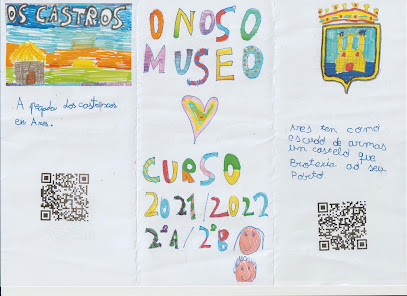 OS CASTROS
A pegada dos castrexos
en Ares.
O NOSO
MUSEO
CURSO
2021/2022
2ºA/2ºB/
Ares ten como
escudo de armas
un castelo que
Protexía ao seu
Porto.